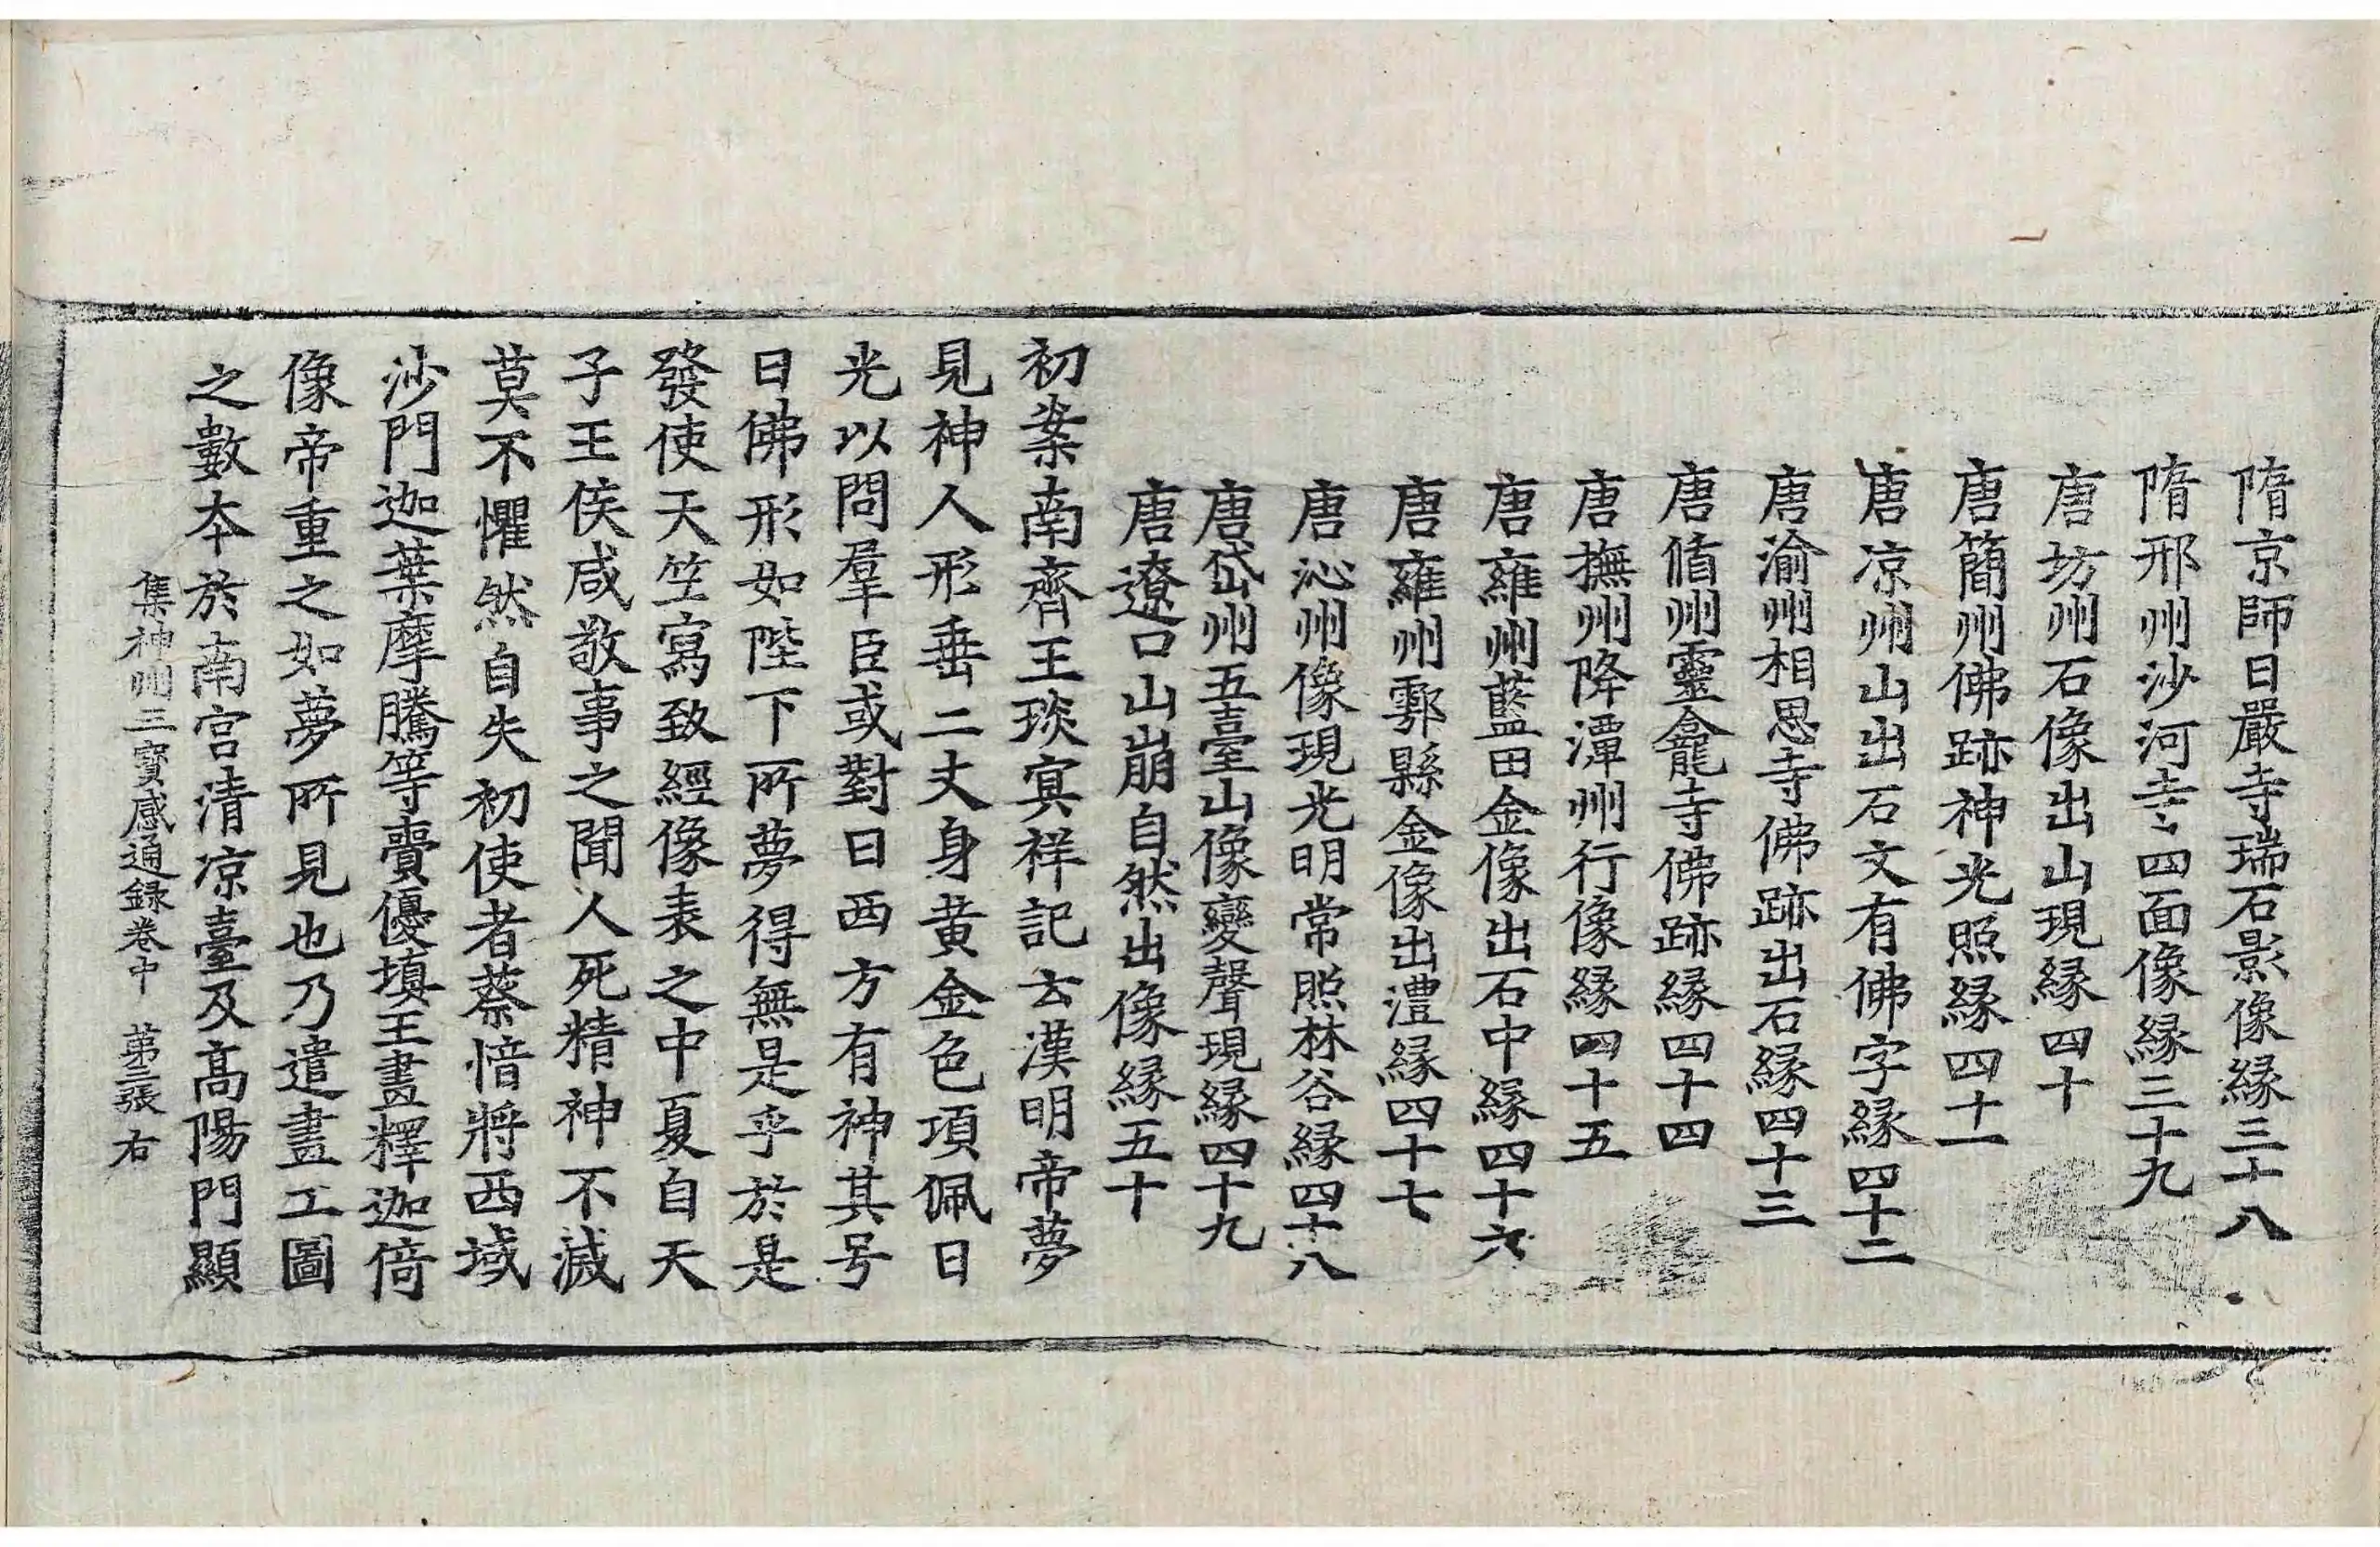 隋京師日嚴寺瑞石影像縁三十八
隋邢州沙河寺寺四面像縁三十九
唐坊州石像出山現縁四十
唐簡州佛跡神光照縁四十一
唐凉州山出石文有佛字縁四十二
唐渝州相思寺佛跡出石縁四十三
唐循州靈龕寺佛跡縁四十四
唐撫州降潭州行像縁四十五
唐雍州藍田金像出石中縁四十六
唐雍州鄠縣金像出澧縁四十七
唐沁州像現光明常照林谷縁四十八
唐岱州五臺山像變聲現縁四十九
唐遼口山崩自然出像縁五十
初案南齊王琰冥祥記云漢明帝夢
見神人形垂二丈身黄金色項佩日
光以問羣臣或對曰西方有神其号
曰佛形如陛下所夢得無是乎於是
發使天竺寫致經像表之中夏自天
子王侯咸敬事之聞人死精神不滅
莫不懼然自失初使者蔡愔將西域
沙門迦葉摩騰等賷優填王畫釋迦倚
像帝重之如夢所見也乃遣畫工圖
之數本於南宫清凉臺及髙陽門顯
集神州三寳感通録卷中 第三張 右